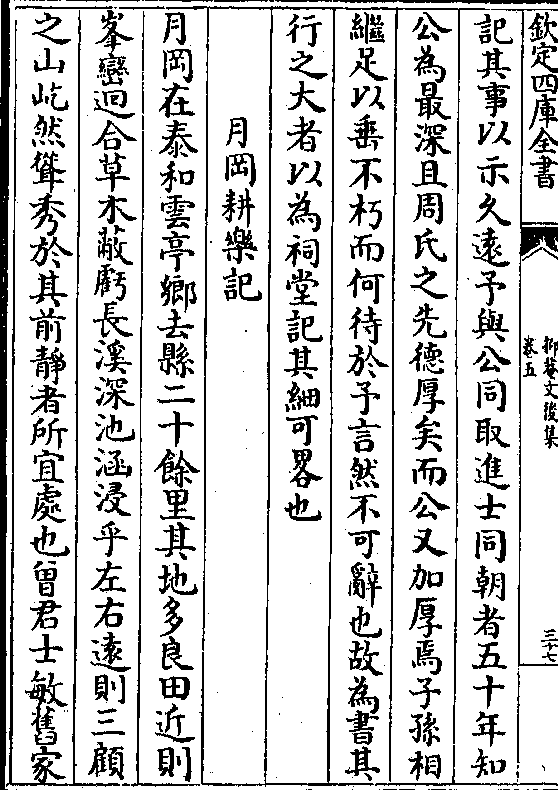 欽定四庫全書
抑菴文後集
卷五
三十七
記其事以示久遠予與公同取進士同朝者五十年知
公為最深且周氏之先德厚矣而公又加厚焉子孫相
繼足以垂不朽而何待於予言然不可辭也故為書其
行之大者以為祠堂記其細可畧也
月岡耕樂記
月岡在泰和雲亭鄉去縣二十餘里其地多良田近則
峯巒迴合草木蔽虧長溪深池涵浸乎左右遠則三顧
之山屹然聳秀於其前靜者所宜處也曾君士敏舊家